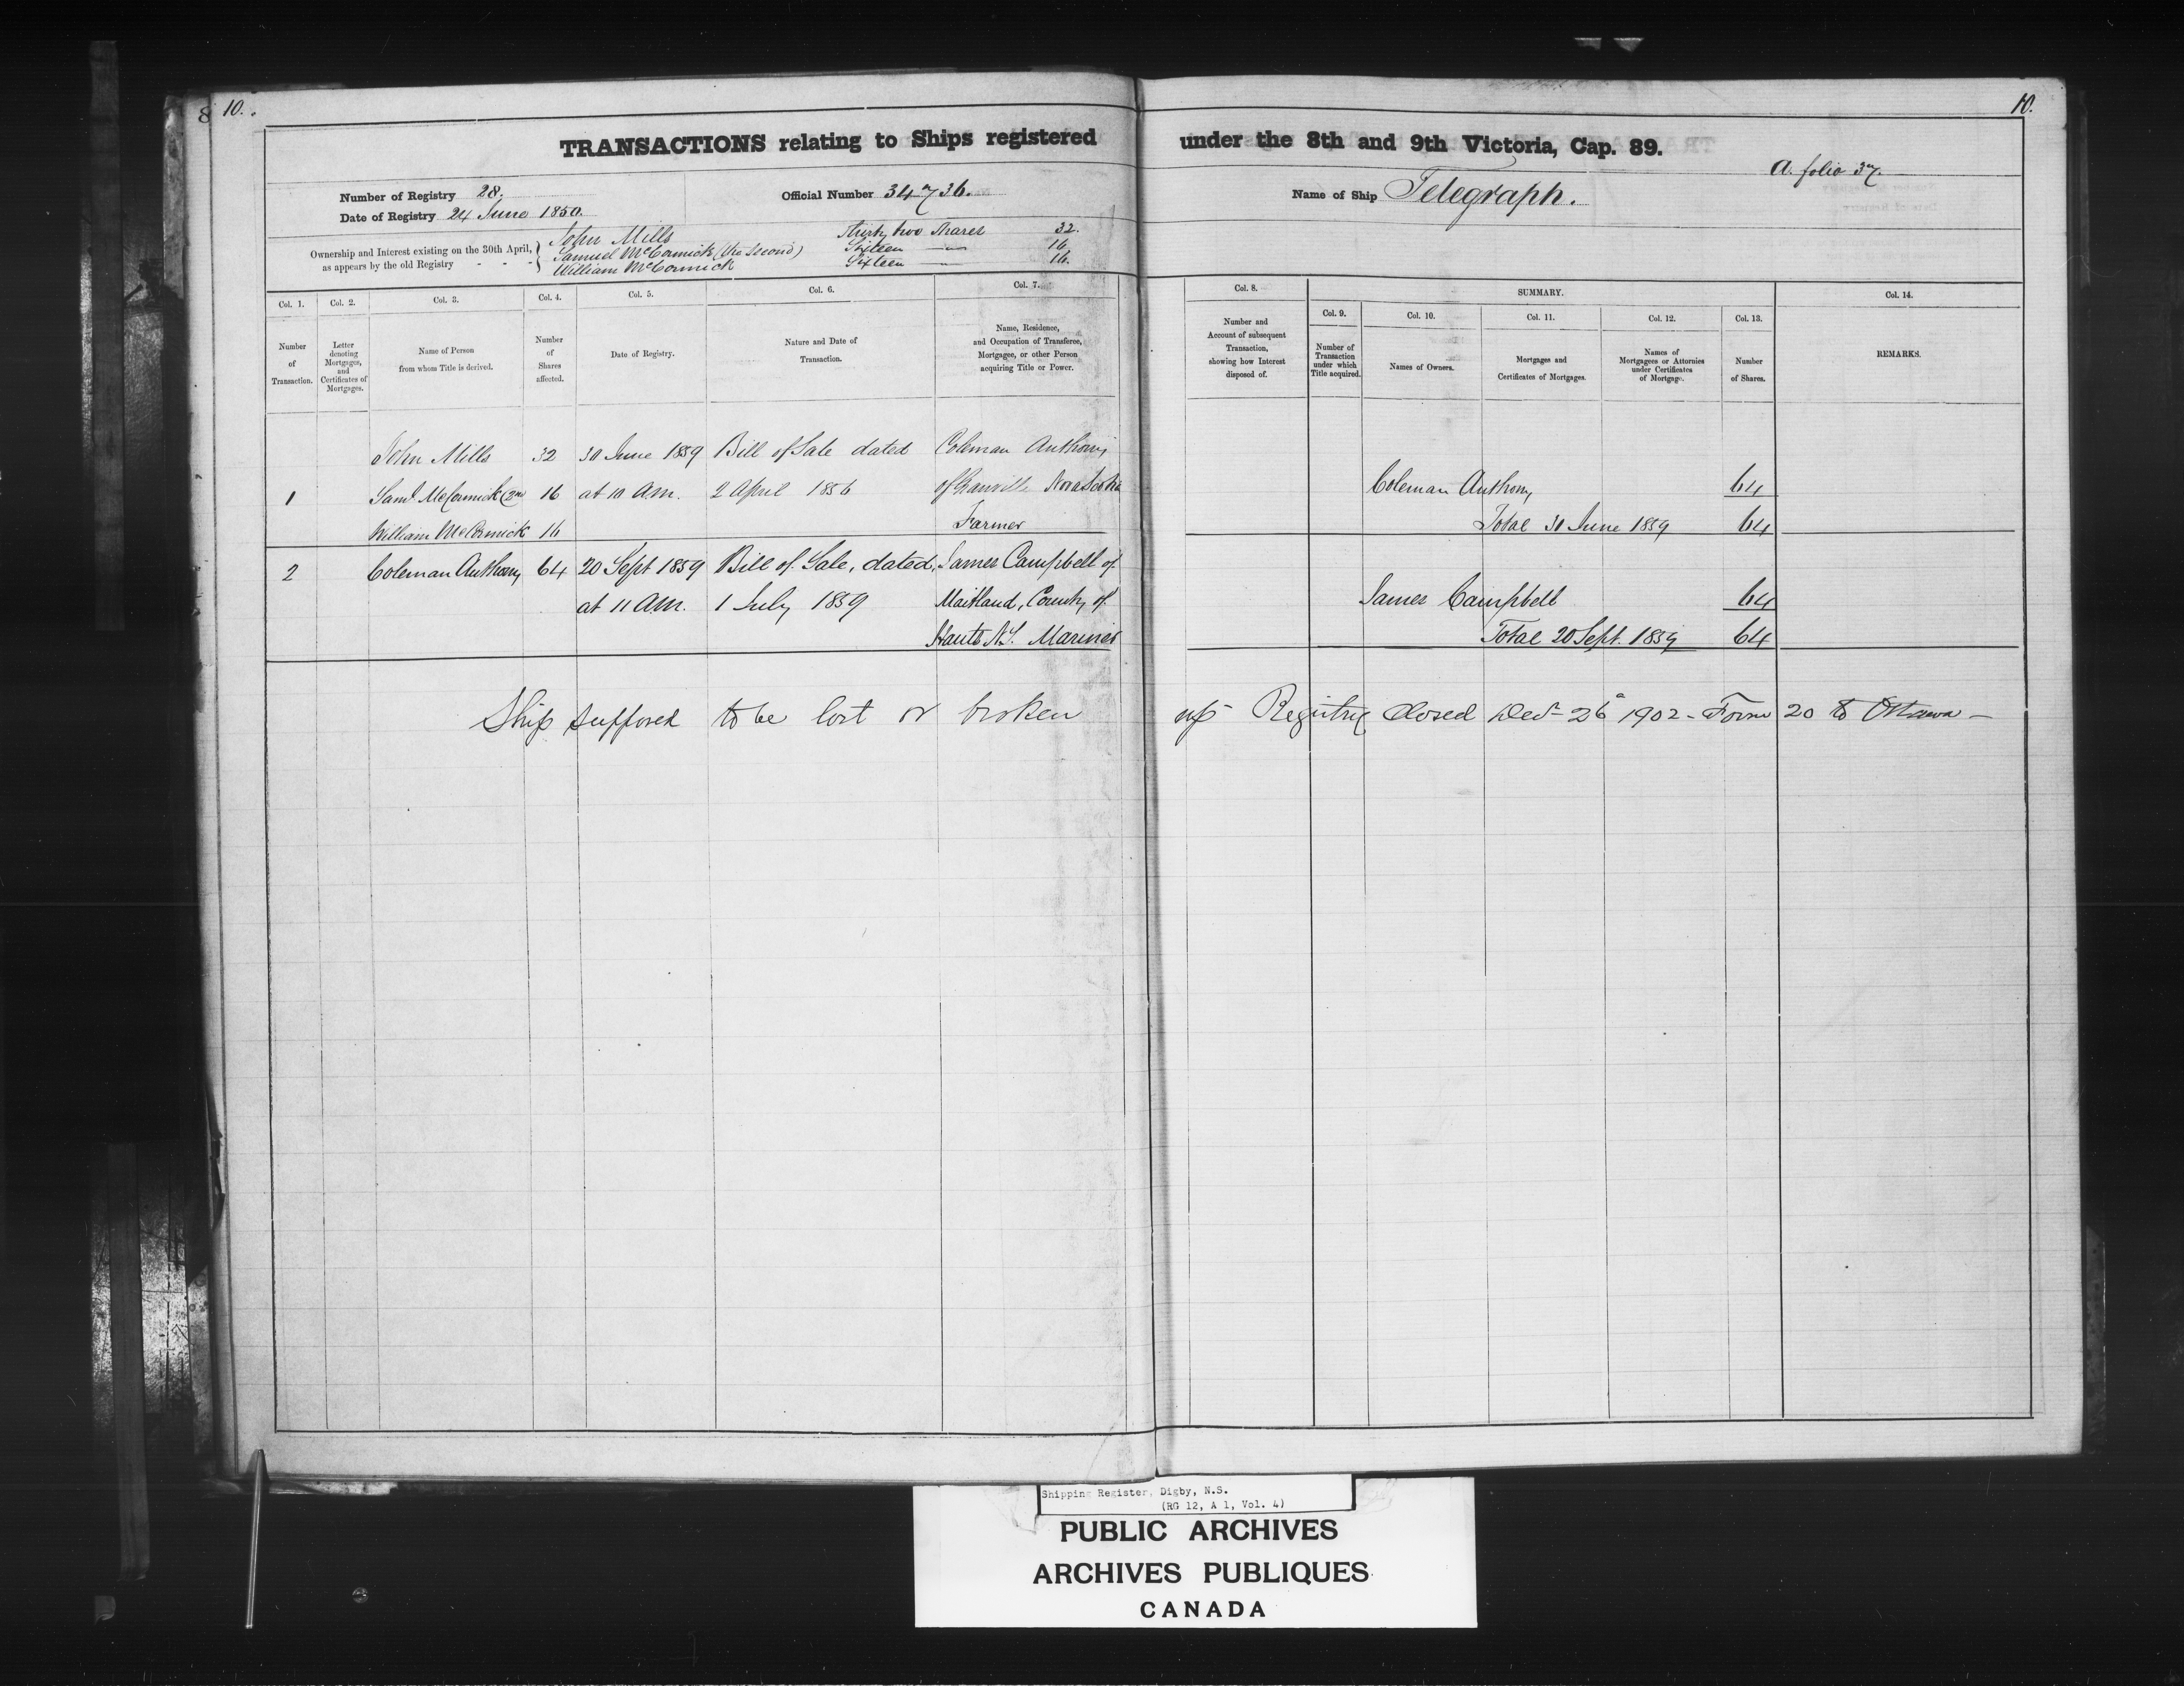 8 10.
10.
TRANSACTIONS relating to Ships registered under the 8th and 9th Victoria, Cap. 89.
A. folio 37.
Number of Registry 28.
Official Number 34736.
Name of Ship Telegraph.
Date of Registry 24 June 1850.
Ownership and Interest existing on the 30th April, as appears by the old Registry - - -
John Mills Thirty two Shares 32.
Samuel McCormick (the Second) Sixteen — 16.
William McCormick Sixteen — 16.
Col. 1. Number of Transaction.
Col. 2. Letter denoting Mortgages, and Certificates of Mortgages.
Col. 3. Name of Person from whom Title is derived.
Col. 4. Number of Shares affected.
Col. 5. Date of Registry.
Col. 6. Nature and Date of Transaction.
Col. 7. Name, Residence, and Occupation of Transferee, Mortgagee, or other Person acquiring Title or Power.
Col. 8. Number and Account of subsequent Transaction, showing how Interest disposed of.
SUMMARY.
Col. 9. Number of Transaction under which Title acquired.
Col. 10. Names of Owners.
Col. 11. Mortgages and Certificates of Mortgages.
Col. 12. Names of Mortgagees or Attornies under Certificates of Mortgage.
Col. 13. Number of Shares.
Col. 14. REMARKS.
John Mills 32 30 June 1859 Bill of Sale dated Coleman Anthony
1 Saml McCormick (2nd 16 at 10 A.M. 2 April 1856 of Granville Nova Scotia Coleman Anthony 64
William McCormick 16 Farmer Total 30 June 1859 64
2 Coleman Anthony 64 20 Sept 1859 Bill of Sale, dated, James Campbell of
at 11 A.M. 1 July 1859 Maitland, County of James Campbell 64
Hants N.S. Mariner Total 20 Sept. 1859 64
Ship supposed to be lost or broken up - Registry Closed Dec 26 1902 - Form 20 to Ottawa -
Shipping Register, Digby, N.S.
(RG 12, A 1, Vol. 4)
PUBLIC ARCHIVES
ARCHIVES PUBLIQUES
CANADA